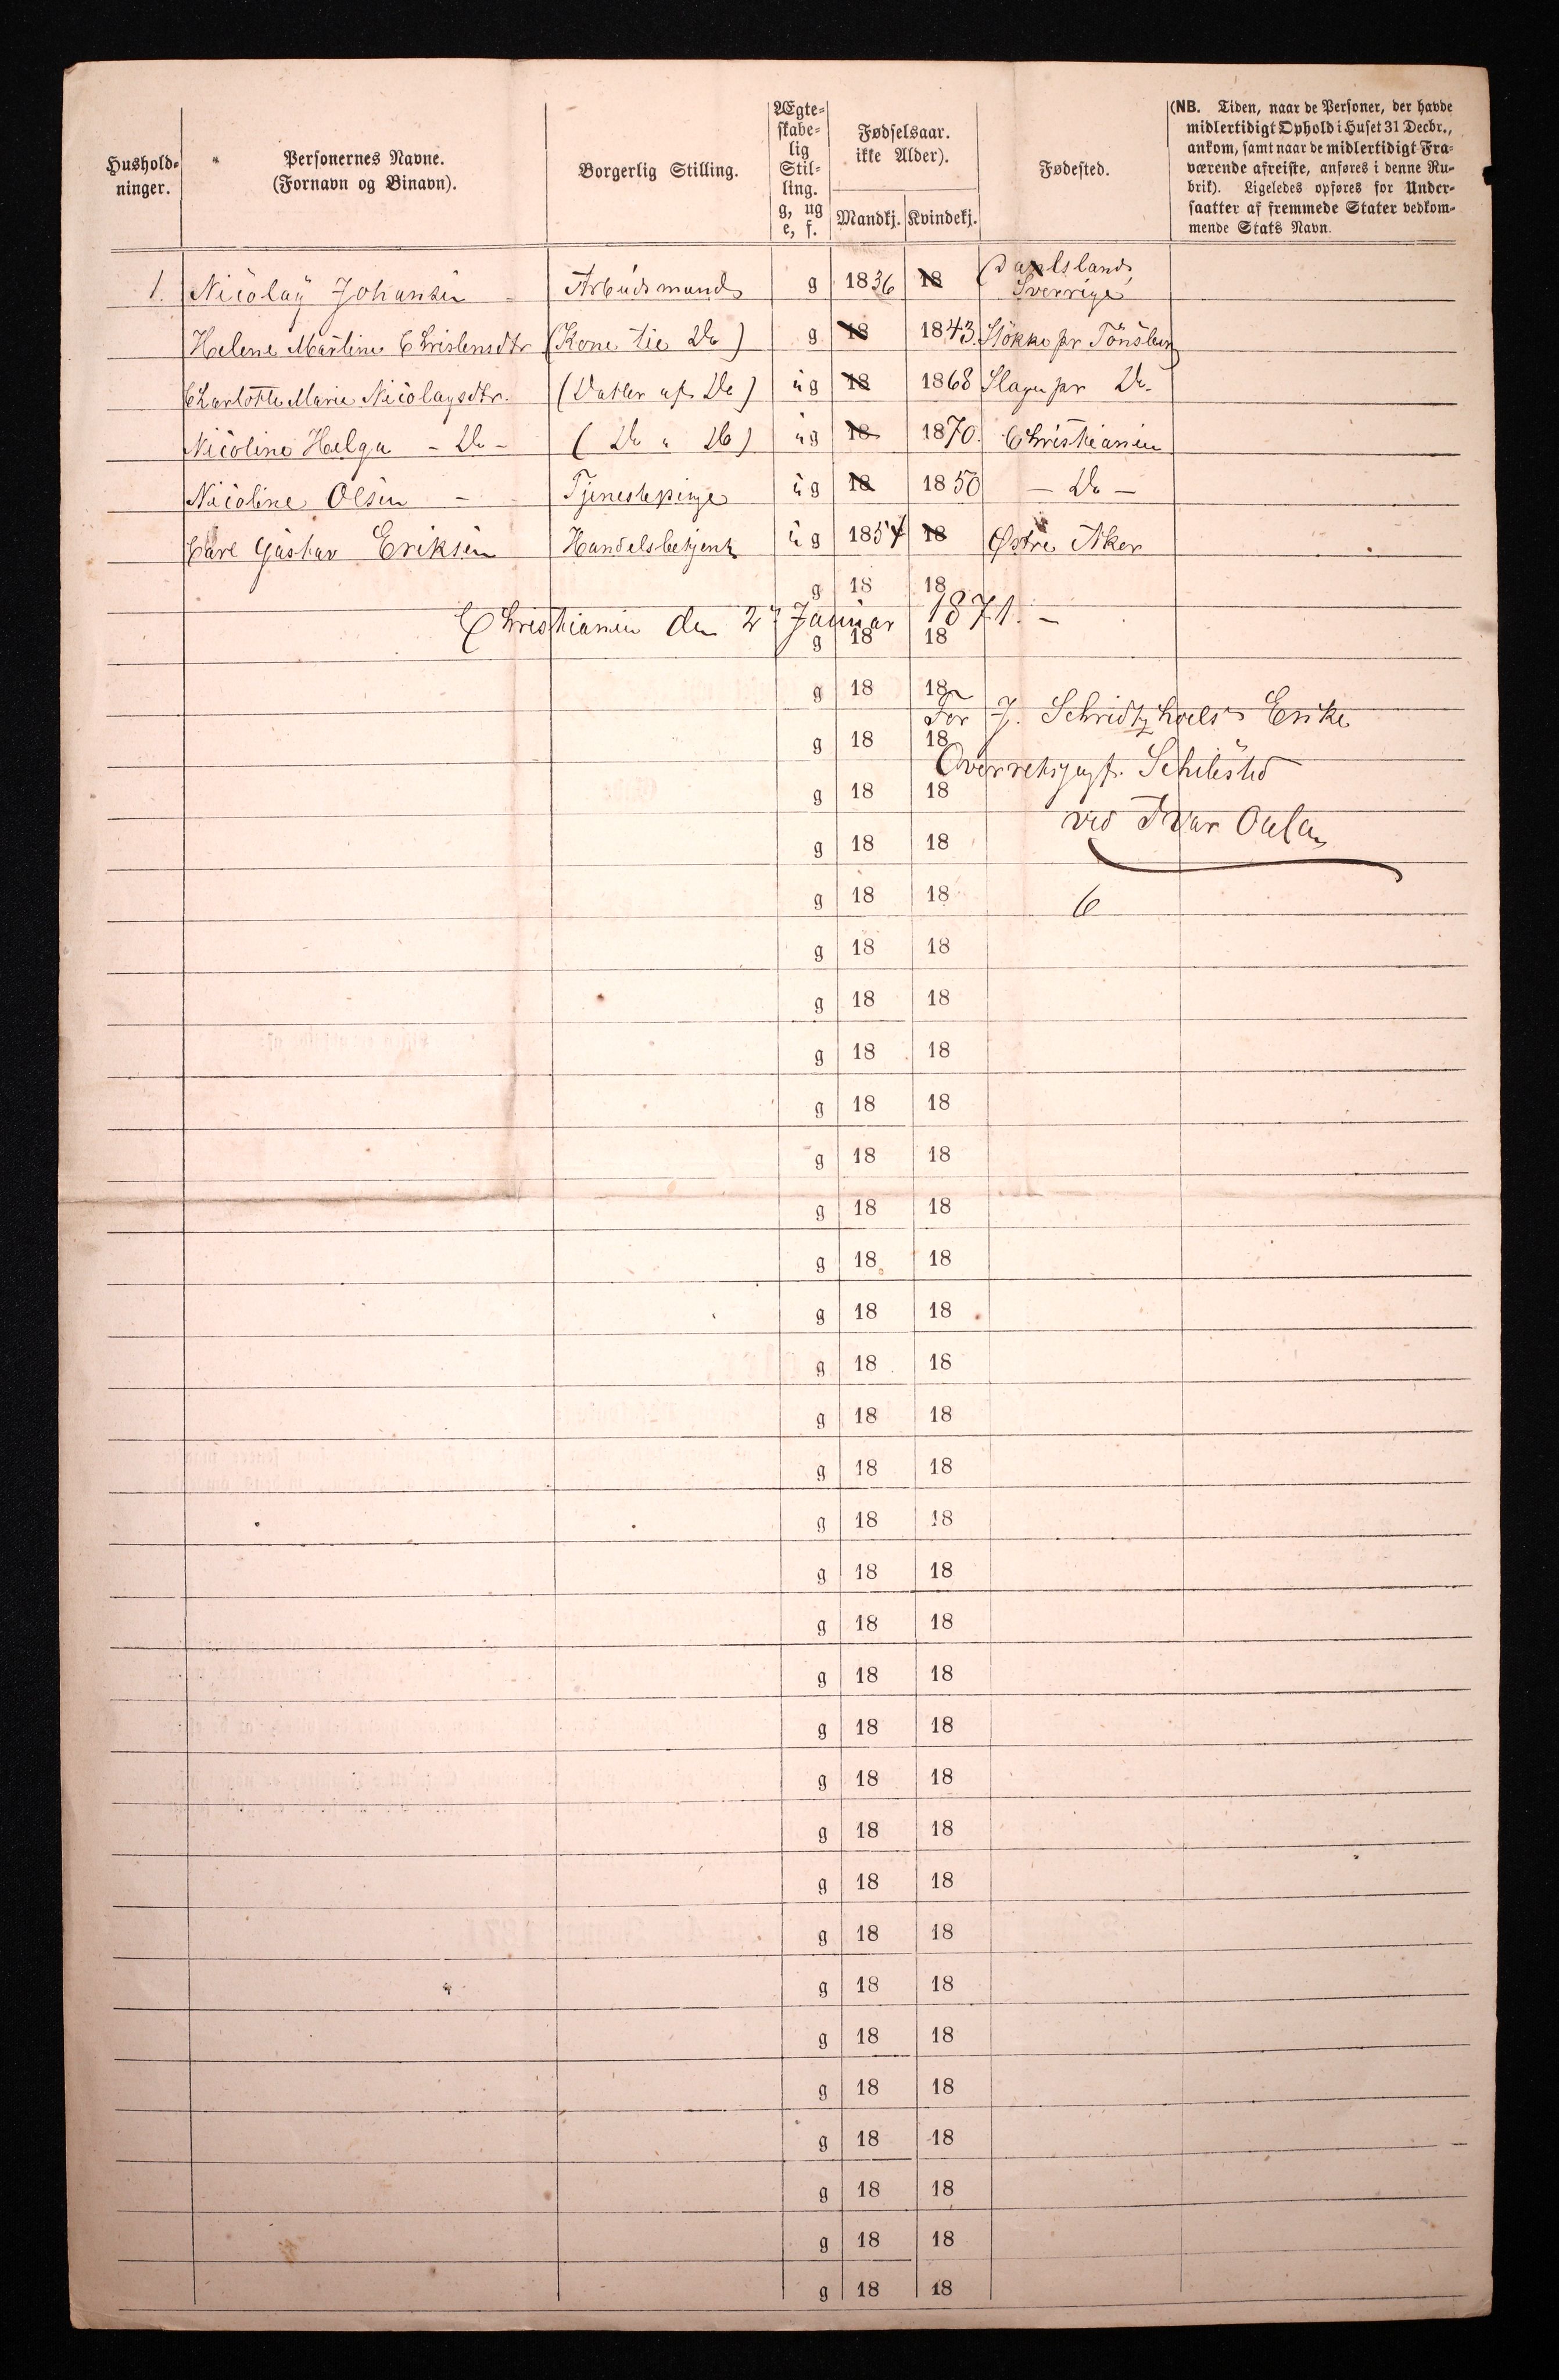 Hushold-
ninger.
Personernes Navne.
(Fornavn og Binavn).
Borgerlig Stilling.
Ægte-
skabe-
lig
Stil-
ling.
g, ug
e, f.
Fødselsaar.
ikke Alder).
Mandkj. Kvindekj.
Fødested.
(NB. Tiden, naar de Personer, der havde
midlertidigt Ophold i Huset 31 Decbr.,
ankom, samt naar de midlertidigt Fra-
værende afreiste, anføres i denne Ru-
brik). Ligeledes opføres for Under-
saatter af fremmede Stater vedkom-
mende Stats Navn.
1. Nicolay Johansen Arbeidsmand g 1836 18 Dalsland, Sverrige
Helene Martine Christensdtr (Kone til Do) g 18 1843 Stokke pr Tönsberg
Charlotte Marie Nicolaysdtr. (Datter af Do) ug 18 1868 Slagen pr Do.
Nicoline Helga - Do - (Do " Do) ug 18 1870. Christiania
Nicoline Olsen - Tjenestepige ug 18 1850 - Do -
Carl Gustav Eriksen Handelsbetjent ug 1854 18 Østre Aker
g 18 18
Christiania den 2 Januar 1871. -
g 18 18
g 18 18
For J. Enke
g 18 18
Overretssagf. Schibsted
g 18 18
ved Ivar
g 18 18
g 18 18 6
g 18 18
g 18 18
g 18 18
g 18 18
g 18 18
g 18 18
g 18 18
g 18 18
g 18 18
g 18 18
g 18 18
g 18 18
g 18 18
g 18 18
g 18 18
g 18 18
g 18 18
g 18 18
g 18 18
g 18 18
g 18 18
g 18 18
g 18 18
g 18 18
g 18 18
g 18 18
g 18 18